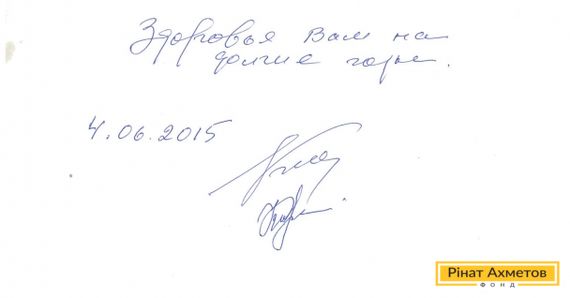 Здоровья Вам на
долгие годы.
4.06.2015
Рінат Ахметов
ФОНД